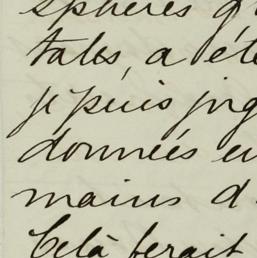 sphères g
tales, a été
je puis jug
données en
mains d
Celà ferait